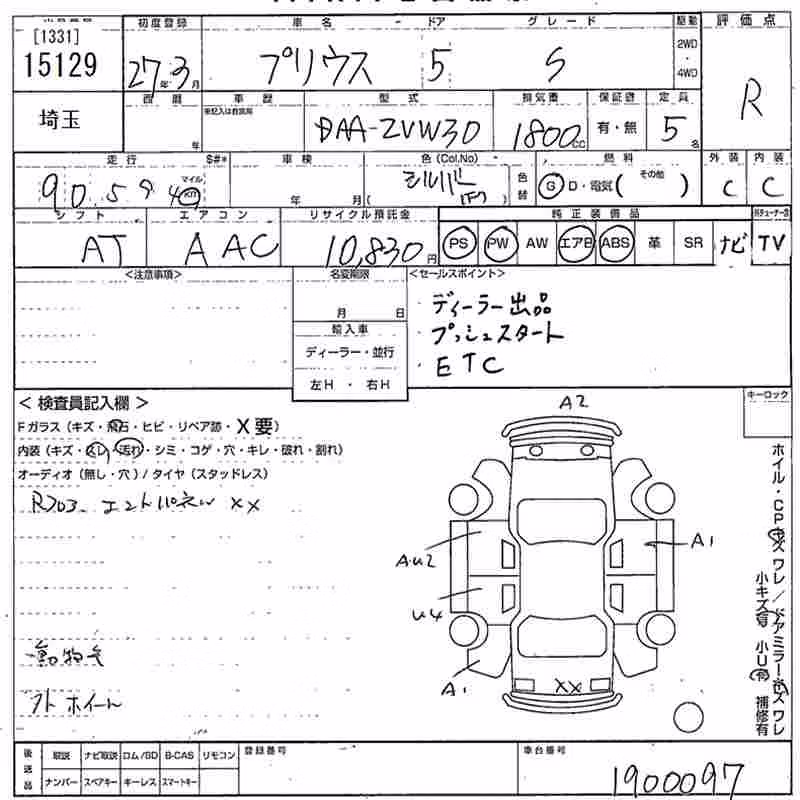 [1331]
15129
埼玉
初度登録
27年3月
車名
プリウス
ドア
5
グレード
S
駆動
2WD
・
4WD
評価点
R
西暦
年
車歴
型式
DAA-ZVW30
排気量
1800cc
保証書
有・無
定員
5名
走行
S#*
90,594
マイル
Km
車検
年 月
色(Col.No)
シルバー
(1F7)
色替
燃料
G D・電気( その他 )
外装
C
内装
C
シフト
AT
エアコン
AAC
リサイクル預託金
10,830円
純正装備品
PS PW AW エアB ABS 革 SR ナビ TV
<注意事項>
名変期限
月 日
輸入車
ディーラー・並行
左H・右H
<セールスポイント>
・ディーラー出品
・プッシュスタート
・ETC
<検査員記入欄>
Fガラス(キズ・飛石・ヒビ・リペア跡・X要)
内装(キズ・スレ・汚れ・シミ・コゲ・穴・キレ・破れ・割れ)
オーディオ(無し・穴)/タイヤ(スタッドレス)
エンドパネル XX
動物毛
外ホイール
キーロック
A2
AU2
A1
U4
A1
XX
ホイール・CPキズワレ/ドアミラーキズワレ
小キズ有 小U有 補修有
後送品
取説 ナビ取説 ロム/SD B-CAS リモコン
ナンバー スペアキー キーレス スマートキー
登録番号
車台番号
1900097